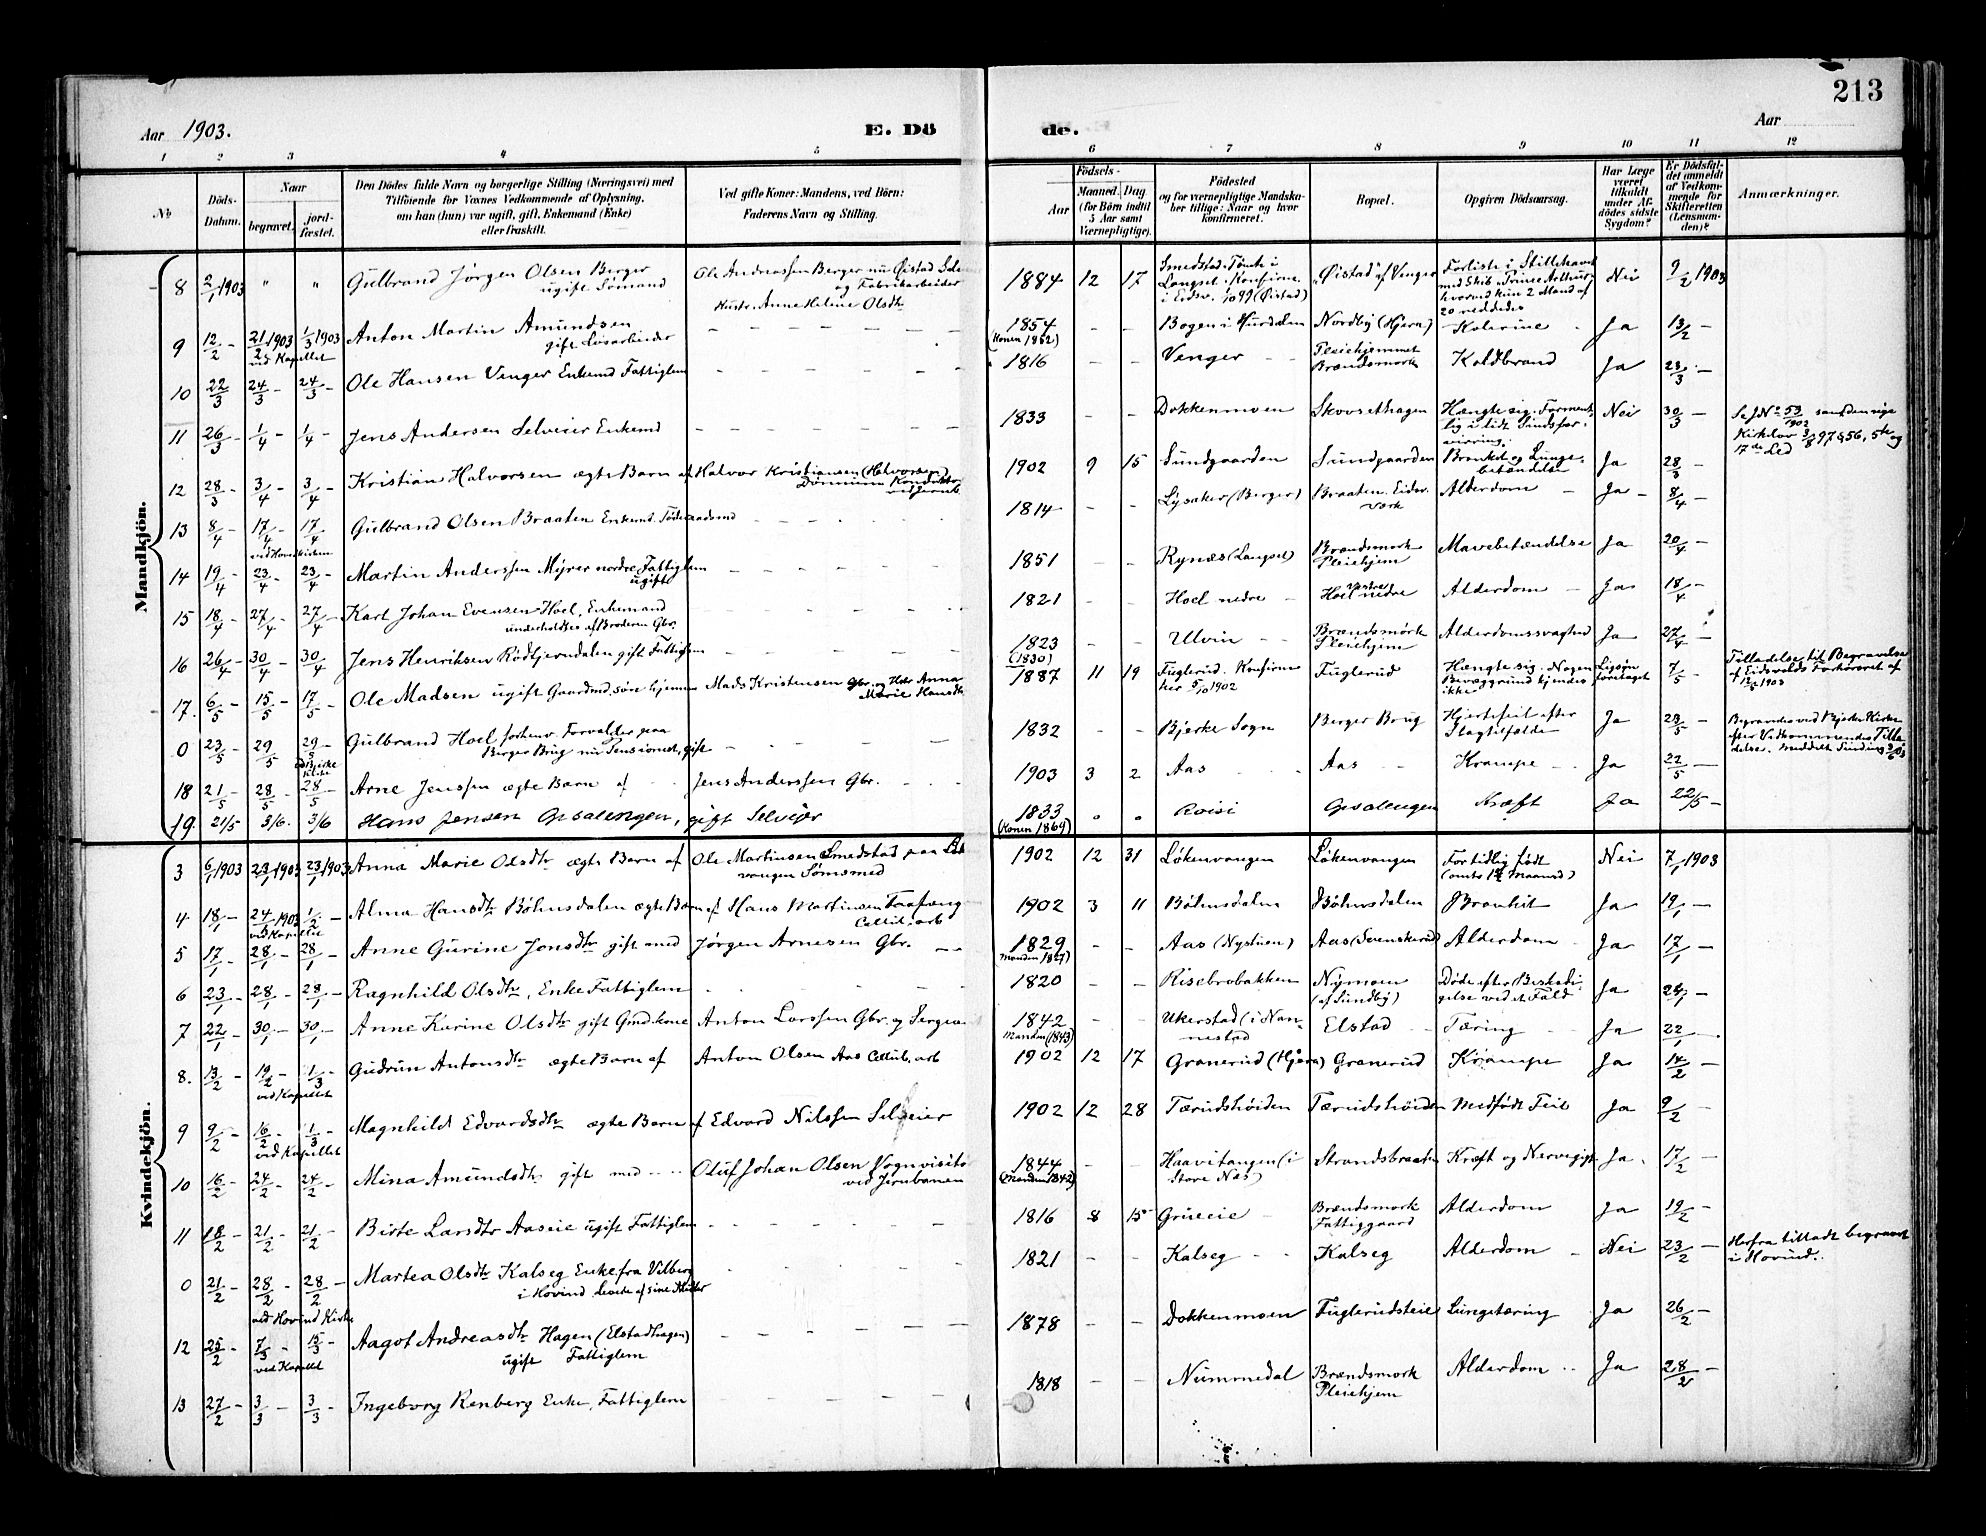 213
Aar 1903. E. Dö de. Aar
1 2 3 4 5 6 7 8 9 10 11 12
No
Döds-Datum.
Naar
begravet.
jord-fæstet.
Den Dödes fulde Navn og borgerlige Stilling (Næringsvei) med
Tilföiende for Voxnes Vedkommende af Oplysning,
om han (hun) var ugift, gift, Enkemand (Enke)
eller fraskilt.
Ved gifte Koner: Mandens, ved Börn:
Faderens Navn og Stilling.
Födsels-
Aar
Maaned Dag
(for Börn indtil
5 Aar samt
Værnepligtige).
Födested
og for værnepligtige Mandska-
ber tillige: Naar og hvor
konfirmeret.
Bopæl.
Opgiven Dödsaarsag.
Har Læge
været
tilkaldt
under Af-
dödes sidste
Sygdom?
Er Dödsfal-
det anmeldt
af Vedkom-
mende for
Skifteretten
(Lensman-
den)?
Anmærkninger.
Mandkjön.
8 2/1 1903 " " Gulbrand Jörgen Olsen Berger ugift Sömand Ole Andreassen Berger nu Øistad og Fabrikarbeider Hustr. Anne Heline Olsdtr 1884 12 17 Smedstad-Tomte i Langset. Konfirm. i Eidsv. 1899 (Øistad) Øistad af Venger Forliste i Stillehavet med Skib "Prince Arthur", hvorved kun 2 Mand af 20 reddedes Nei 9/2 1903
9 12/2 – 21/2 1903 ved Kapellet 1/3 1903 Anton Martin Amundsen gift Løsarbeider – – – 1854 (Konen 1862) – – Bogen i Hurdalen Nordby (Hjera) Kolerine Ja 13/2 –
10 22/3 24/3 – 24/3 – Ole Hansen Venger Enkemd Fattiglem – – – 1816 – – Venger Pleiehjemmet Brændsmork Koldbrand Ja 23/3 –
11 26/3 – 1/4 – 1/4 – Jens Andersen Selveier Enkemd – – – 1833 – – Dokkenmoen Skovsethagen Hængte sig. Forment-lig i tidt Sindsfor-virring. Nei 30/3 – Se J No 53/1902 samt den nye Kirkelov 3/8 97 § 56, 5te og 17de Led
12 28/3 – 3/4 – 3/4 – Kristian Halvorsen ægte Barn af Halvor Kristiansen (Halvorsen) Dönnum Konduktör ved Jernb. 1902 9 15 Sundgaarden Sundgaarden Bronkit og Lunge-betændelse Ja 28/3 –
13 8/4 – 17/4 – ved Hovedkirken 17/4 Gulbrand Olsen Braaten Enkemd. Föderaadsmd – – – 1814 – – Lysaker (Berger) Braaten. Eidsv. værk Alderdom – Ja – 8/4 –
14 19/4 – 23/4 – 23/4 – Martin Anderssen Myrer nordre Fattiglem ugift – – – 1851 – – Rynæs (Langset) Brændsmork Pleiehjem Mavebetændelse Ja 20/4 –
15 18/4 – 27/4 – 27/4 – Karl Johan Evensen Hoel, Enkemand underholdtes af Broderen Gbr. – – – 1821 – – Hoel nedre – Hoel vestre nedre Alderdom – Ja 18/4 –
16 26/4 – 30/4 – 30/4 Jens Henriksen Rödtjerndalen gift Fattiglem – – – 1823 (1830) – Ulvin – – Brændsmörk Pleiehjem Alderdomssvaghed Ja 27/4 –
17. 6/5 – 15/5 – 17/5 – Ole Madsen ugift Gaardmd.sön hjemme Mads Kristensen Gbr. og Hstr Anna Marie Hansdtr 1887 11 19 Fuglerud. Konfirm. her 5/10 1902 Fuglerud Hængte sig. Nogen Bevæggrund kjendes ikke Ligsyn foretaget 7/5 – Tilladelse til Begravelse af Eidsvolds Forhörsret af 12/5 1903
0 23/5 – 29/5 29/5 – ved Bjerke Kirke Gulbrand Hoel forhenv. Forvalter paa Berger Brug nu Pensionist, gift – – – 1832 – – Bjerke Sogn Berger Brug Hjertefeil efter Slagtilfælde Ja 23/5 – Begravedes ved Bjerke Kirke efter Vedkommendes Tilla-delse.
18 21/5 28/5 – 28/5 – Arne Jenssen ægte Barn af Jens Anderssen Gbr. 1903 3 2 Aas Aas Krampe Ja 22/5 –
19. 21/5 3/6. 3/6 Hans Jensen Opsalengen, gift Selveier 1833 (Konen 1869) " " Roisi Opsalengen Kræft Ja 22/5 –
Kvindekjön.
3 6/1 1903 23/1 1903 23/1 1903 Anna Marie Olsdtr ægte Barn af Ole Martinsen Smedstad paa Lök vangen Sömsmed 1902 12 31 Løkenvangen Løkenvangen For tidlig født Nei 7/1 1903
4. 18/1 – 24/1 1903 ved Kapellet 1/2 – Alma Hansdtr Böhnsdalen ægte Barn af Hans Martinsen Cellul. arb 1902 3 11 Böhnsdalen Böhnsdalen Bronkit Ja 19/1 –
5 17/1 – 28/1 – 28/1 Anne Gurine Jonsdtr gift med Jörgen Arnesen Gbr. – – 1829 Manden 1827) – – Aas (Nystuen) Aas (Svenskerud) Alderdom Ja 17/1 –
6 23/1 – 28/1 – 28/1 – Ragnhild Olsdtr, Enke Fattiglem 1820 – – Risebrobakken Nymoen (af Sundby) Döde efter Beskadi-gelse ved et Fald Ja 24/1 –
7 22/1 – 30/1 – 30/1 – Anne Karine Olsdtr gift Gmd.kone Anton Larssen Gbr. og 1842 Manden (1843) – – Ukerstad (i Nan-nestad Elstad Tæring Ja 22/1 –
8. 13/2 – 19/2 – ved Kapellet 1/3 Gudrun Antonsdtr ægte Barn af Anton Olsen Aas Cellul. arb 1902 12 17 Granerud (Hjera) Granerud Krampe Ja 14/2 –
9 9/2 – 16/2 – ved Kapellet 1/3 – Magnhild Edvardsdtr ægte Barn af Edvard Nilssen Selveier 1902 12 28 Tærudshöiden Tærudshöiden Medfödt Feil Ja 9/2 –
10 16/2 – 24/2 – 24/2 – Mina Amundsdtr gift med Oluf Johan Olsen Vognvisitör ved Jernbanen 1844 (Manden 1842) – – Haavitangen (i Store Næs) Strandsbraaten Kræft og Nervegigt Ja. 17/2 –
11 18/2 – 21/2 – 21/2 – Birte Larsdtr Aaseie ugift Fattiglem – – – 1816 8 15 Grueeie Brændsmork Fattiggaard Alderdom Ja 19/2 –
0 21/2 – 28/2 – 28/2 – ved Hovind Kirke Martea Olsdtr Kalseg Enke fra Vilberg i Hovind levede af sine Midler 1821 – – Kalseg – – Kalseg Alderdom – Nei 23/2 – Herfra tilladt begravet i Hovind.
12 25/2 – 7/3 – ved Kapellet 15/3 – Aagot Andreasdtr Hagen (Elstadhagen) ugift Fattiglem – – – 1878 – – Dokkenmoen Fuglerudsteie Lungetæring Ja 26/2 –
13 27/2 – 3/3 – 3/3 – Ingeborg Renberg Enke, Fattiglem – – – 1818 – – Nummedal Brændsmork Pleiehjem Alderdom Ja 28/2 –